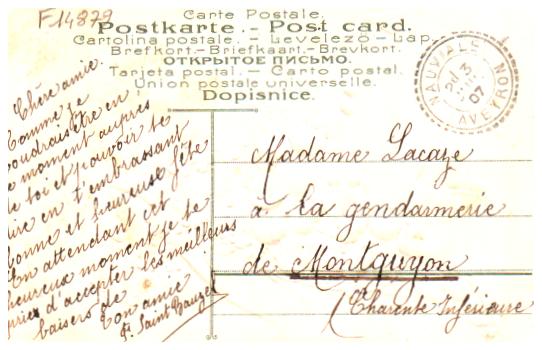 F14879
Carte Postale.
Postkarte. - Post card.
Cartolina postale. - Levelező-Lap.
Brefkort.-Briefkaart.-Brevkort.
ОТКРЫТОЕ ПИСЬМО.
Tarjeta postal. - Carto postal.
Union postale universelle.
Dopisnice.
NAUVIALE AVEYRON
3
07
Chère amie.
Comme je
voudrais être en
ce moment auprès
de toi et pouvoir te
dire en t'embrassant
Bonne et heureuse fête
En attendant cet
heureux moment je te
prie d'accepter les meilleurs
baisers de
ton amie
Madame Lacaze
à la gendarmerie
de Montguyon
(Charente Inférieure